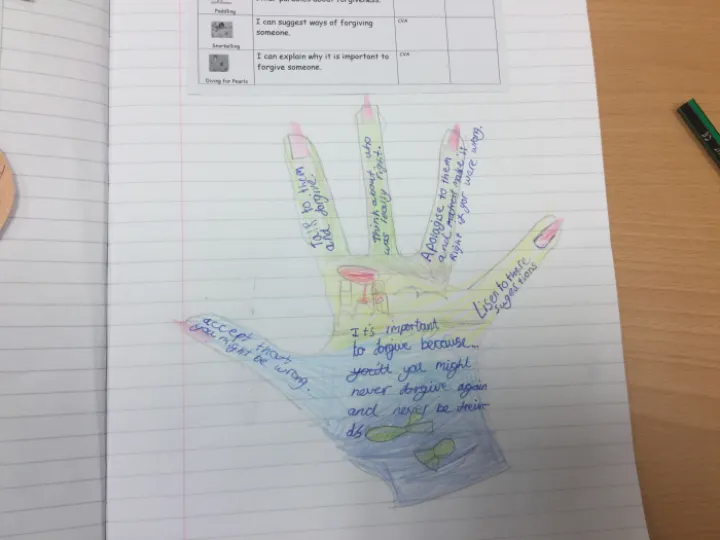 other parables about forgiveness.
Paddling
I can suggest ways of forgiving
someone.
LVA
Snorkelling
I can explain why it is important to
forgive someone.
LVA
Diving for Pearls
Talk to them
and forgive.
Think about who
was really right.
Apologise to them
and make it
Right if yor were wrong.
Lisen to there
sugestions
accept that
you might be wrong.
It's important
to forgive because..
you might
never forgive again
and never be